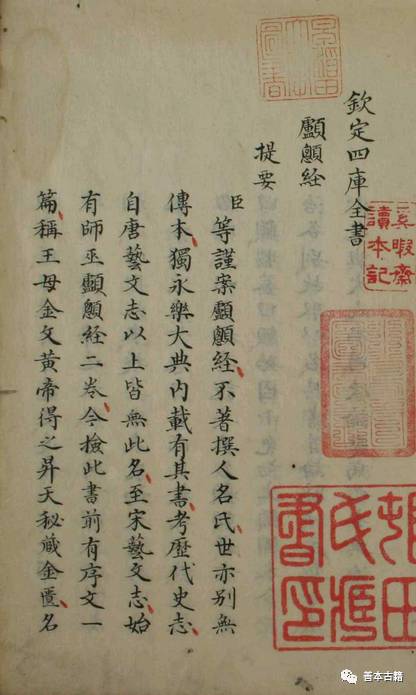 欽定四庫全書
顱顖經
提要
臣等謹案顱顖經不著撰人名氏世亦別無
傳本獨永樂大典內載有其書考歷代史志
自唐藝文志以上皆無此名至宋藝文志始
有師巫顱顖經二卷今撿此書前有序文一
篇稱王母金文黃帝得之昇天秘藏金匱名
暇齋
讀本記
善本古籍